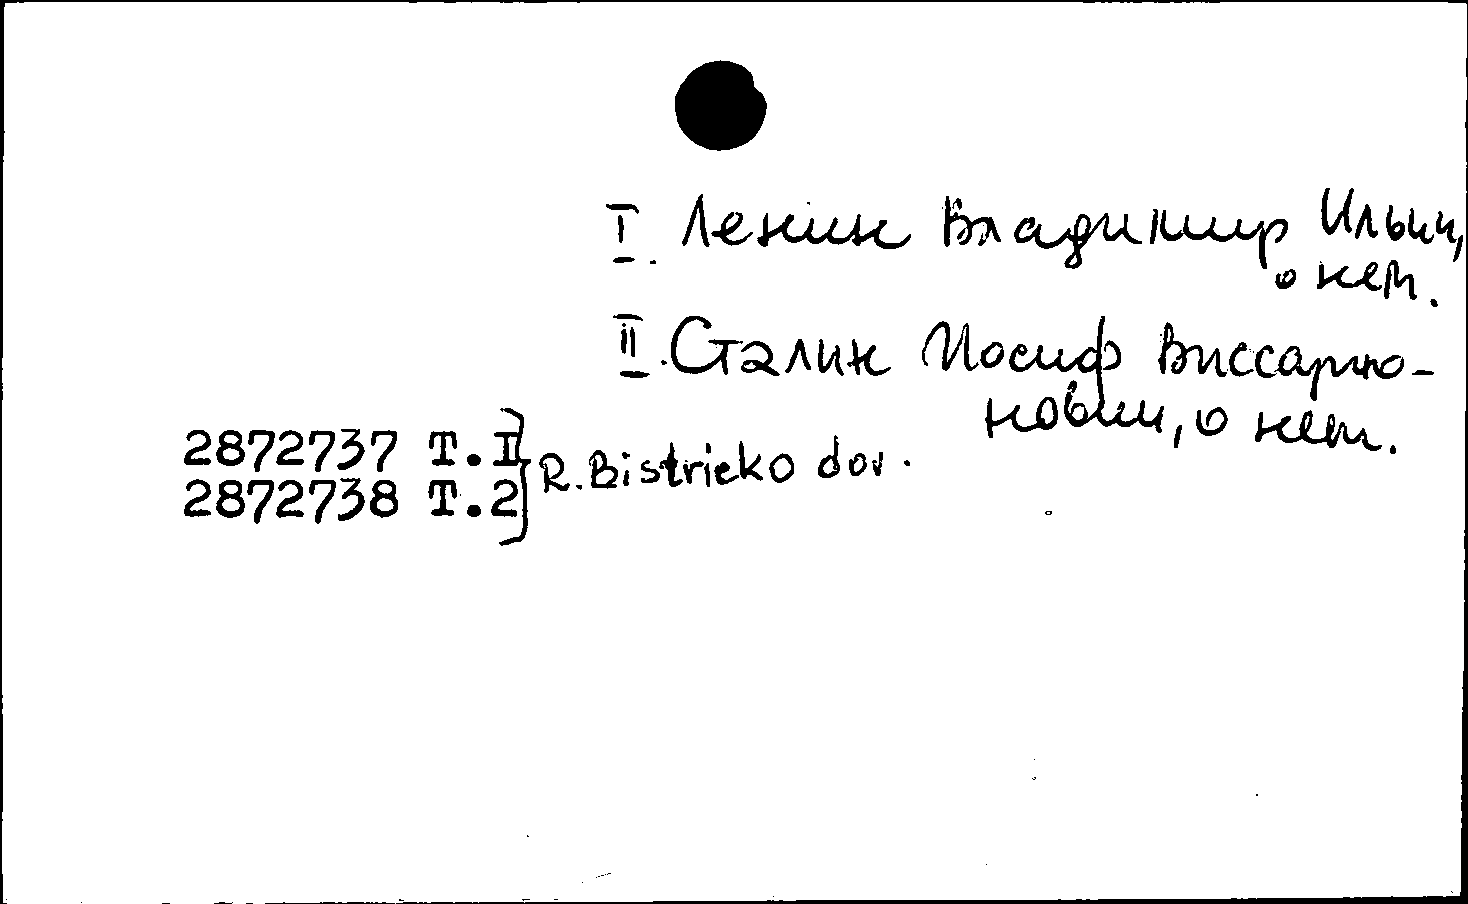 I. Ленин Владимир Ильич,
о нем.
II. Сталин Иосиф Виссарио-
нович, о нем.
2872737 T.I
2872738 T.2
R. Bistricko dov.